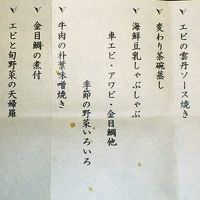 エビの雲丹ソース焼き
変わり茶碗蒸し
海鮮豆乳しゃぶしゃぶ
車エビ・アワビ・金目鯛他
季節の野菜いろいろ
牛肉の朴葉味噌焼き
金目鯛の煮付
エビと旬野菜の天婦羅